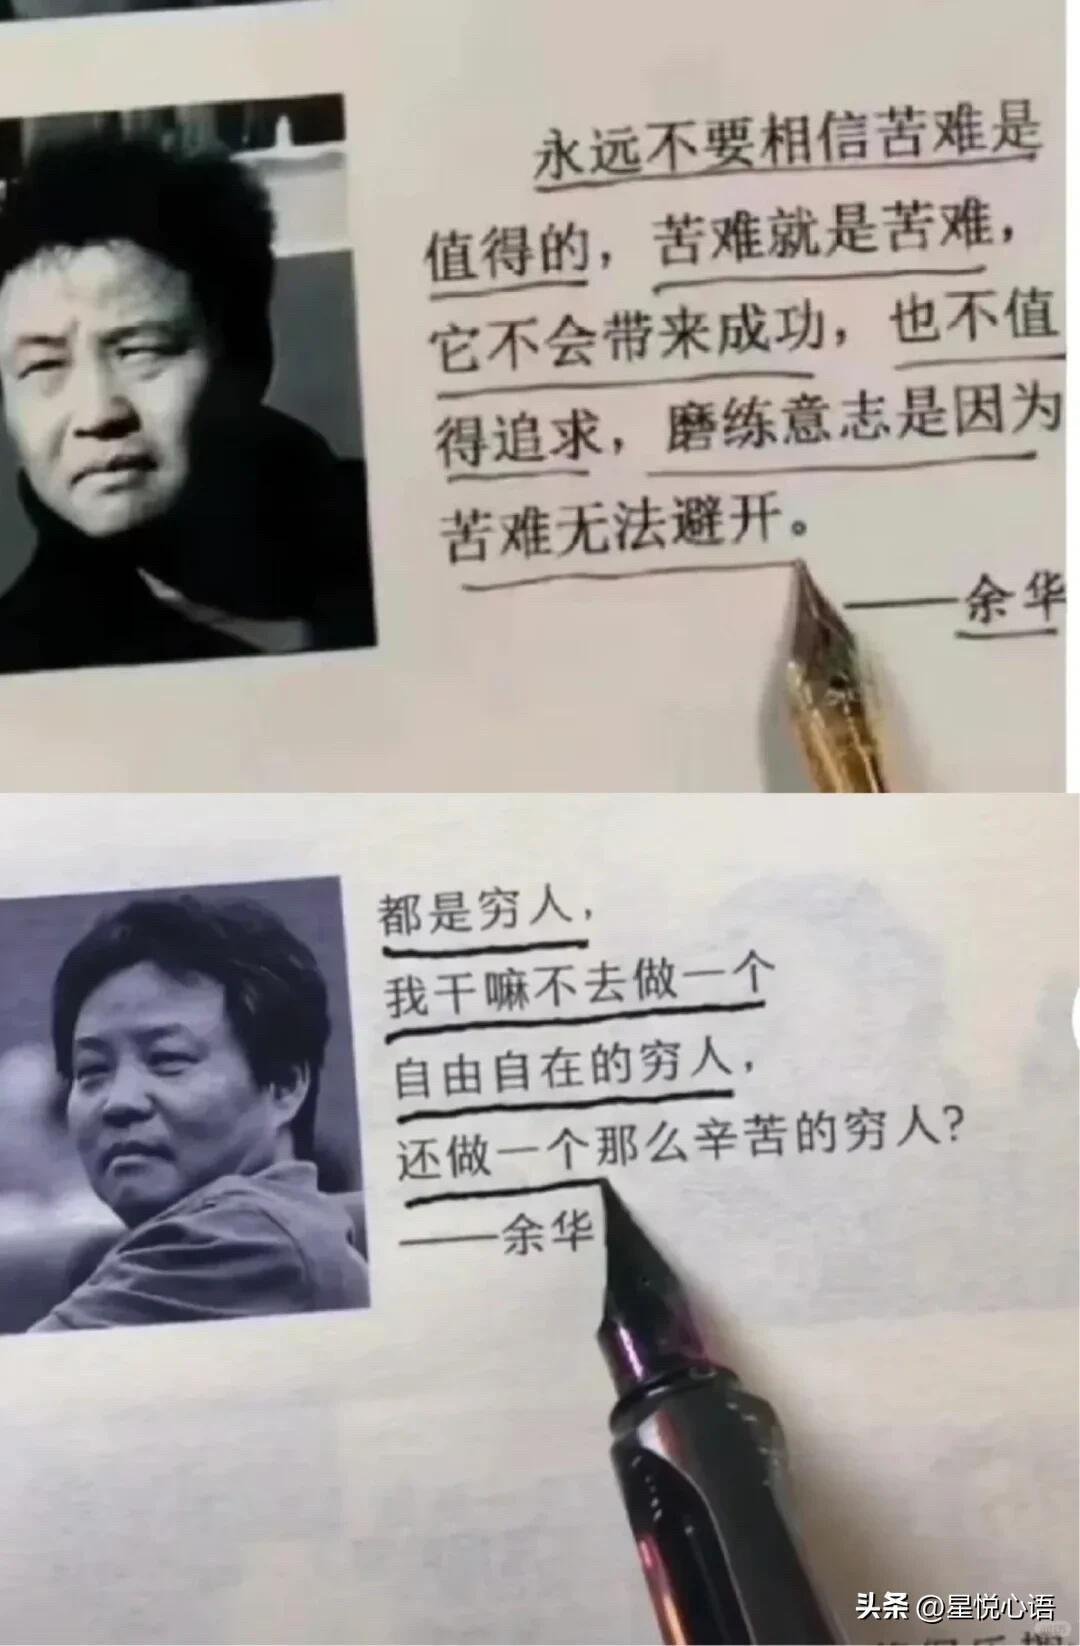 永远不要相信苦难是
值得的，苦难就是苦难，
它不会带来成功，也不值
得追求，磨练意志是因为
苦难无法避开。
——余华
都是穷人，
我干嘛不去做一个
自由自在的穷人，
还做一个那么辛苦的穷人？
——余华
头条 @星悦心语